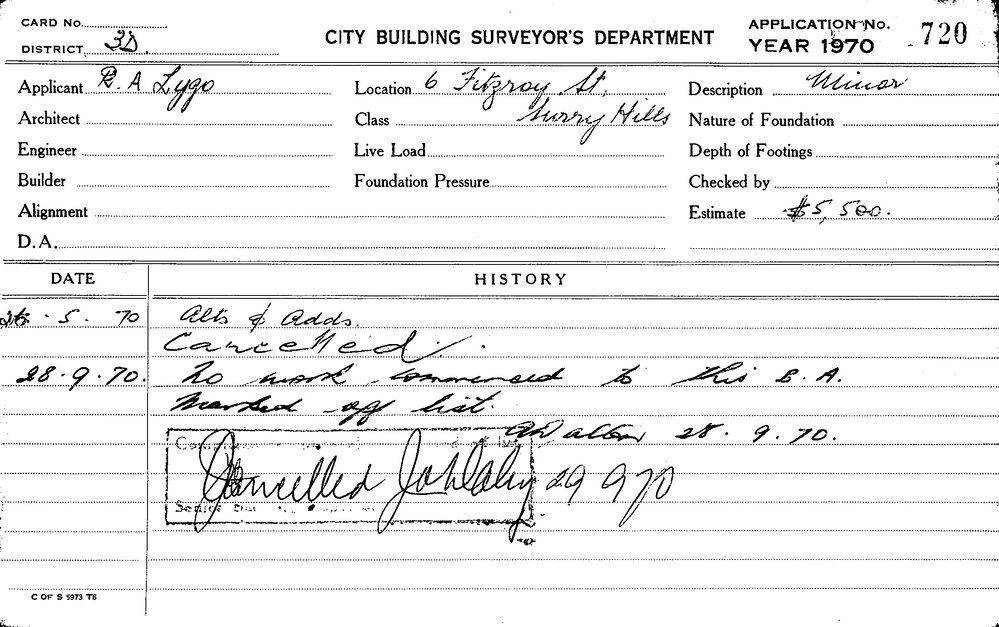 CARD No.
DISTRICT 3D.
CITY BUILDING SURVEYOR'S DEPARTMENT
APPLICATION No.
YEAR 1970 720
Applicant R. A Lygo
Location 6 Fitzroy St,
Description Minor
Architect
Class Surry Hills
Nature of Foundation
Engineer
Live Load
Depth of Footings
Builder
Foundation Pressure
Checked by
Alignment
Estimate $5,500.
D.A.
DATE HISTORY
26.5.70 Alts & Adds.
Cancelled.
28.9.70. No work commenced to this B.A.
Marked off list.
28.9.70.
Cancelled 29 9 70
C OF S 5973 T6